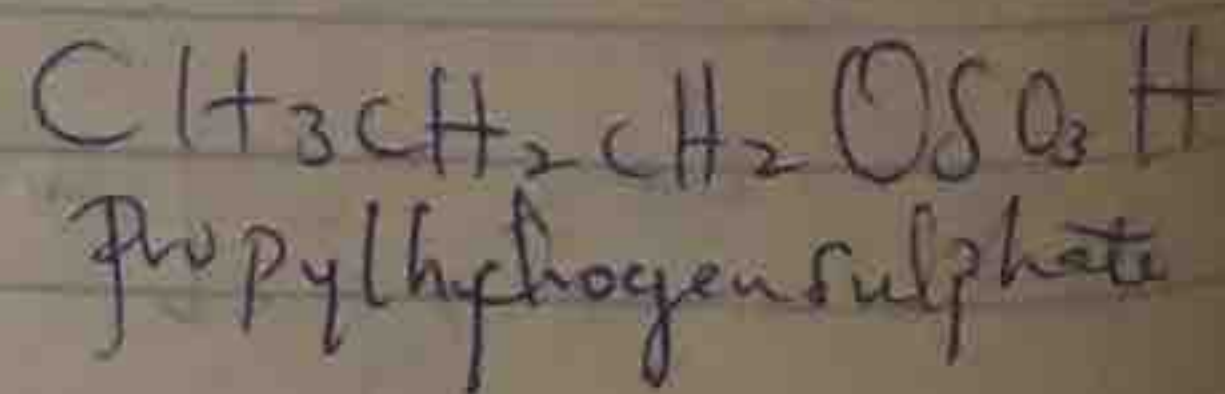 CH3CH2CH2OSO3H
Propylhydrogensulphate